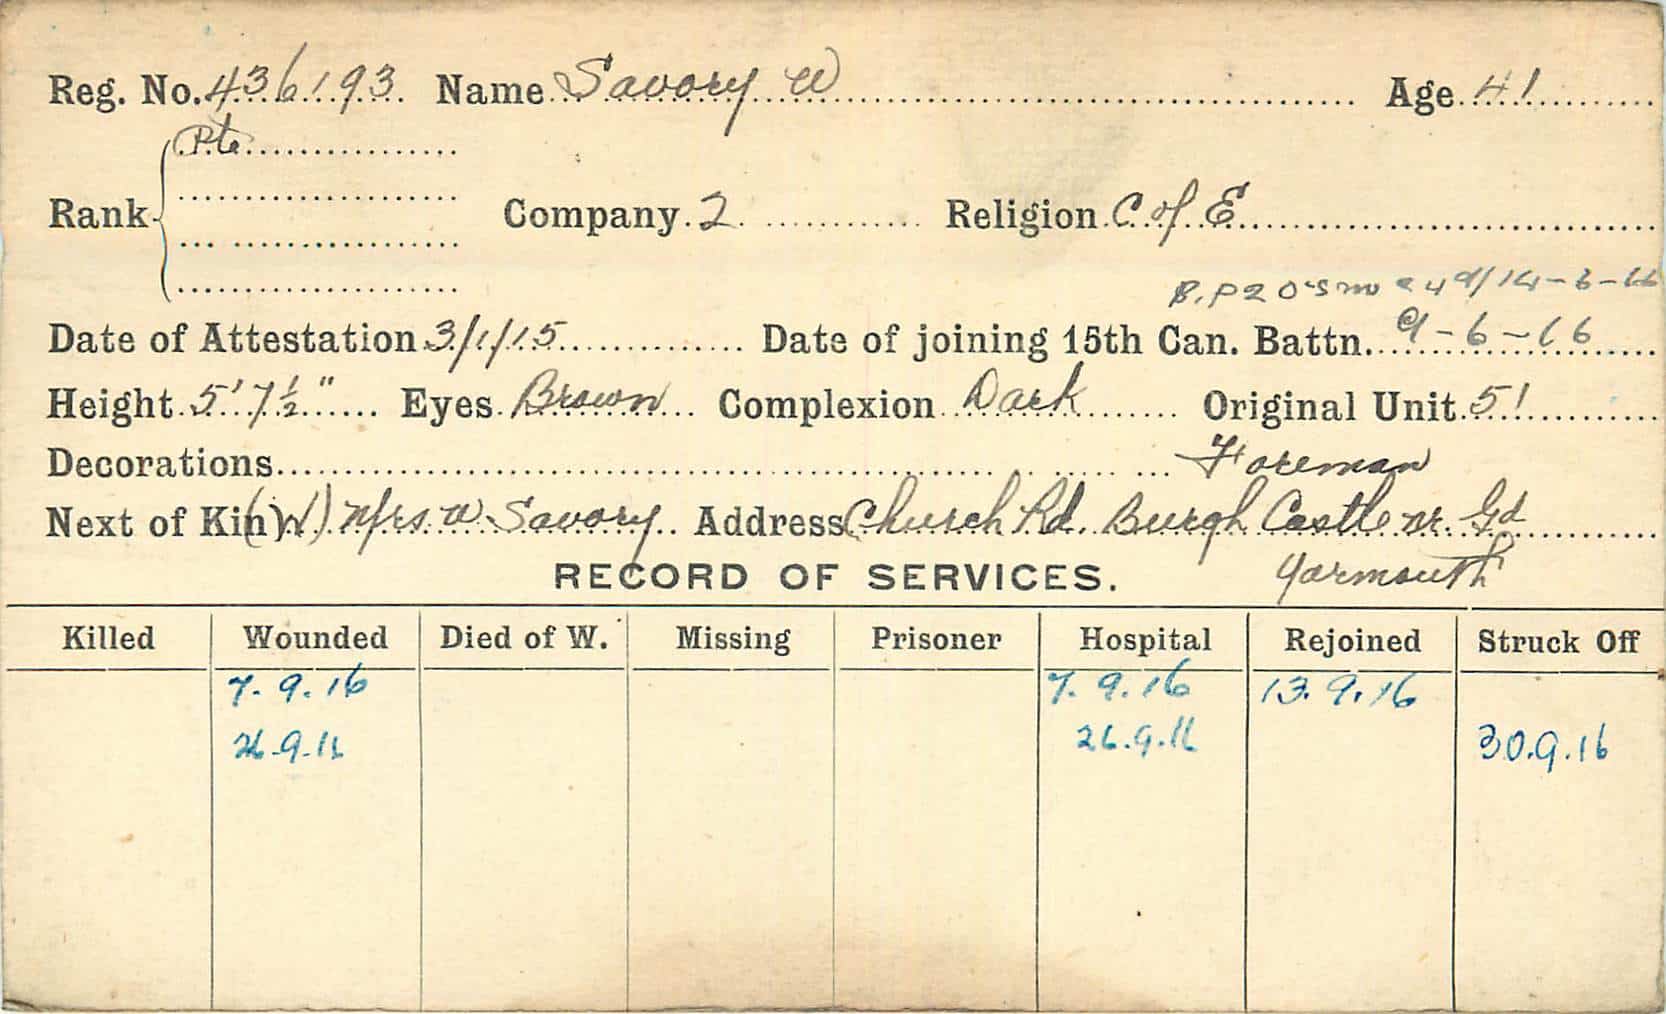 Reg. No. 436193 Name Savory W Age 41
Pte
Rank Company 2 Religion C of E
14-6-16
Date of Attestation 3/1/15 Date of joining 15th Can. Battn. 9-6-16
Height 5' 7½" Eyes Brown Complexion Dark Original Unit 51
Decorations Foreman
Next of Kin (W) Mrs. W Savory Address Church Rd. Burgh Castle nr. Gd
Yarmouth
RECORD OF SERVICES.
Killed Wounded Died of W. Missing Prisoner Hospital Rejoined Struck Off
7.9.16 7.9.16 13.9.16
26.9.16 26.9.16 30.9.16